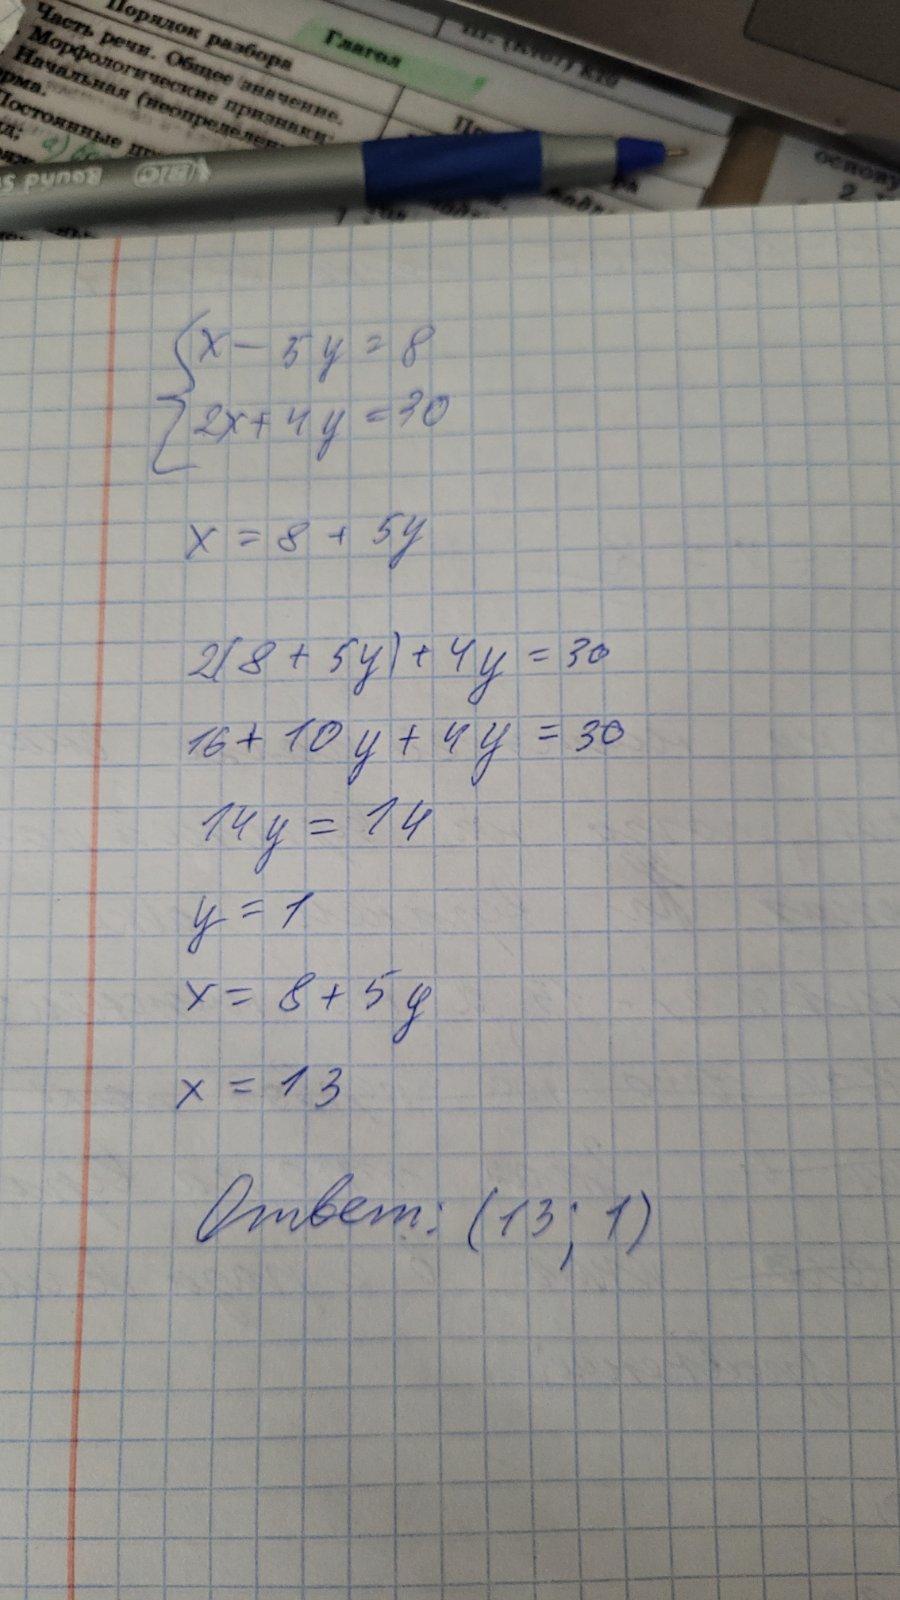 Порядок разбора
Глагол
Часть речи. Общее значение.
Морфологические признаки:
Начальная (неопределен
Постоянные
BIC
Round
основу
2
{x - 5y = 8
2x + 4y = 30
x = 8 + 5y
2(8 + 5y) + 4y = 30
16 + 10y + 4y = 30
14y = 14
y = 1
x = 8 + 5y
x = 13
Ответ: (13; 1)